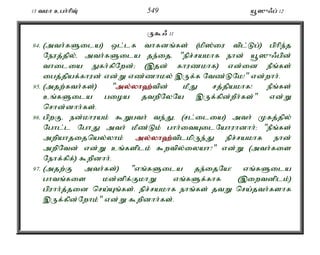 13 வமா உபர்ரிஉ 549 யூஸுஃப் 12
ருகூஃ 11
94. (அவர்களுடைய) ஒட்டக வாகனங்கள் (மிஸ்ரை விட்டுப்) பிரிந்த
நேரத்தில், அவர்களுடைய தந்தை, "நிச்சயமாக நான் யூஸுஃபின்
வாடையை நுகர்கிறேன்; (இதன் காரணமாக) என்னை நீங்கள்
பைத்தியக்காரன் என்று எண்ணாமல் இருக்க வேண்டுமே" என்றார்.
95. (அதற்கவர்கள்) "அல்லாஹ்வின் மீது சத்தியமாக! நீங்கள்
உங்களுடைய பழைய தவறிலேயே இருக்கின்றீர்கள்" என்று
சொன்னார்கள்.
96. பிறகு, நன்மாராயம் கூறுபவர் வந்து, (சட்டையை) அவர் முகத்தில்
போட்ட போது அவர் மீண்டும் பார்வையுடையோரானார்; "நீங்கள்
அறியாததையெல்லாம் அல்லாஹ்விடமிருந்து நிச்சயமாக நான்
அறிவேன் என்று உங்களிடம் கூறவில்லையா?" என்று (அவர்களை
நோக்கிக்) கூறினார்.
97. (அதற்கு அவர்கள்) "எங்களுடைய தந்தையே! எங்களுடைய
பாவங்களை மன்னிக்குமாறு எங்களுக்காக (இறைவனிடம்)
பிரார்த்தனை செய்யுங்கள், நிச்சயமாக நாங்கள் தவறு செய்தவர்களாக
இருக்கின்றோம்" என்று கூறினார்கள்.